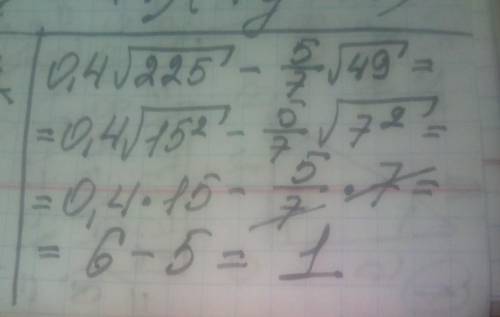 0,4√225 - 5/7 √49 =
= 0,4√15² - 5/7 √7² =
= 0,4·15 - 5/7 · 7 =
= 6 - 5 = 1